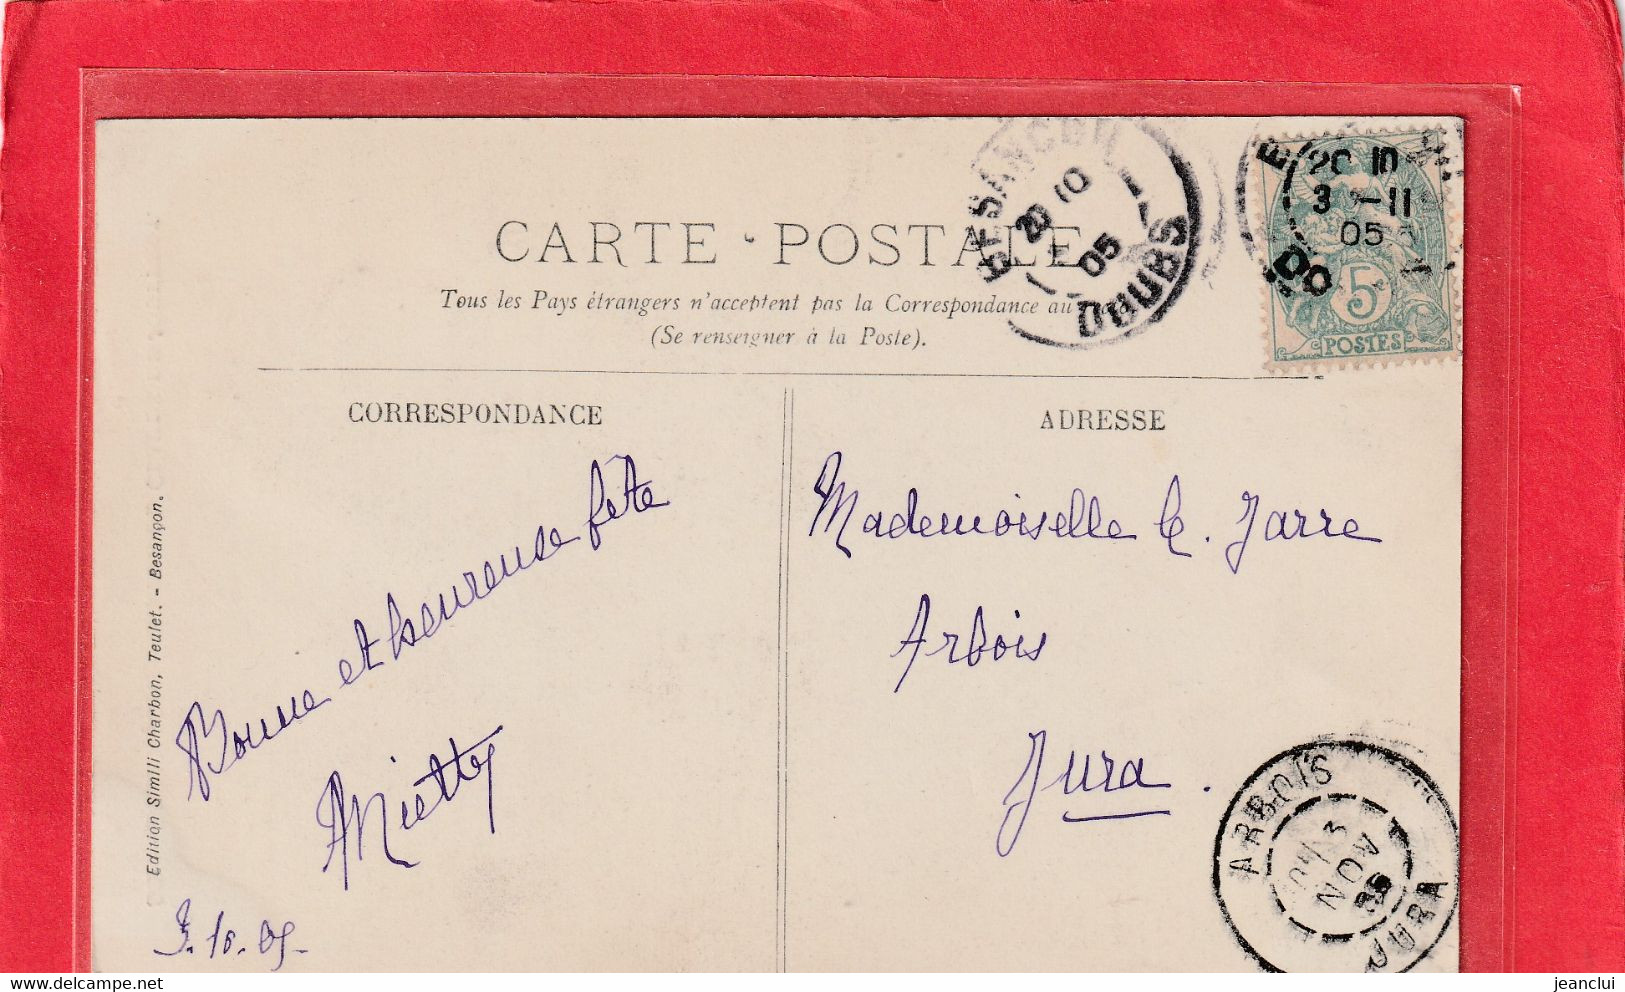 CARTE POSTALE
Tous les Pays étrangers n'acceptent pas la Correspondance au
(Se renseigner à la Poste).
BESANCON
20 10
05
DOUBS
20 10
3 -11
05
DO
5
POSTES
CORRESPONDANCE
ADRESSE
Bonne et heureuse fête
3.10.05
Mademoiselle Jarre
Arbois
Jura.
ARBOIS
3
NOV
05
JURA
Edition Simili Charbon, Teulet. - Besançon.
jeanclui